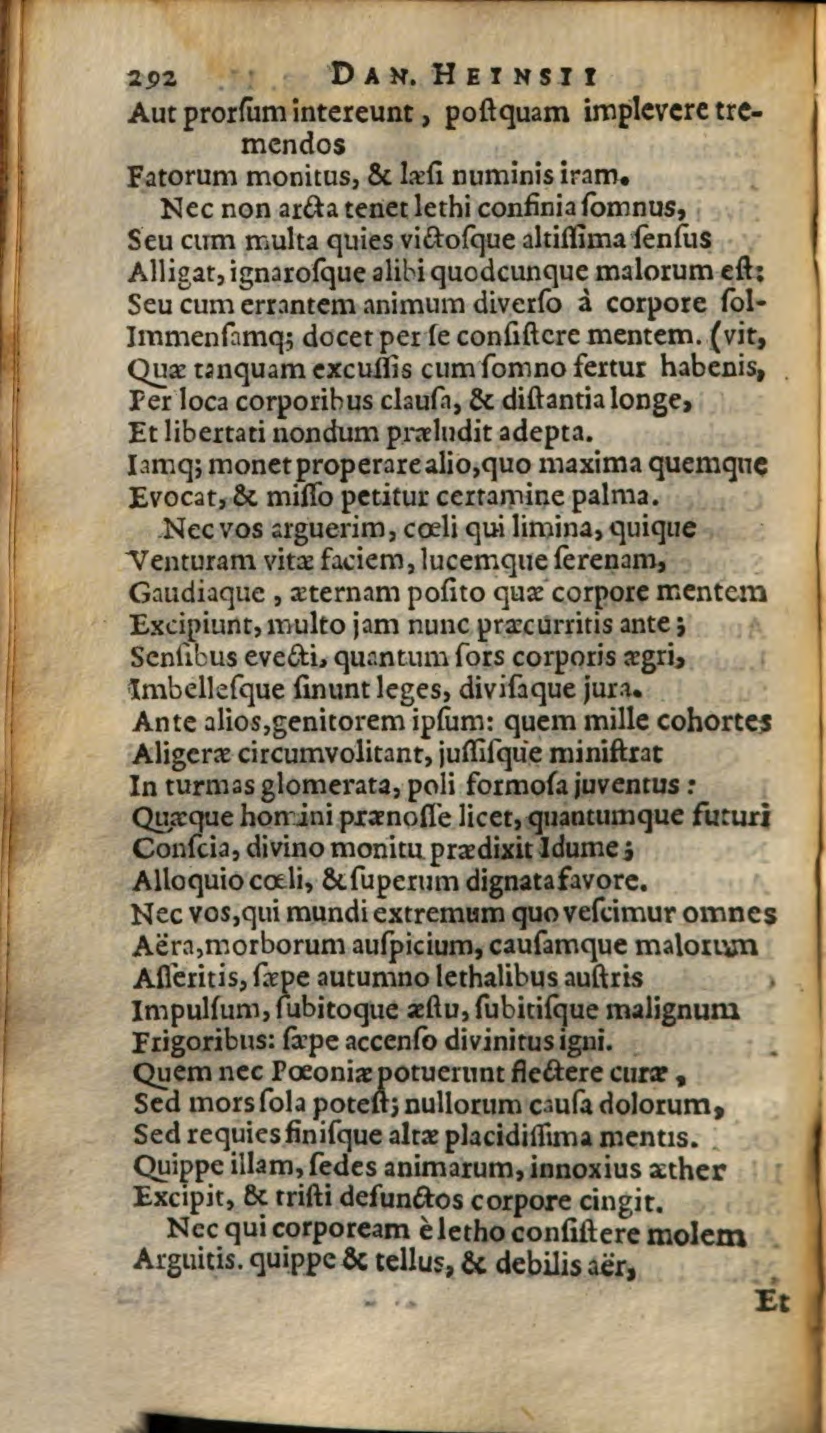 292 DAN. HEINSII
Aut prorſum intereunt, poſtquam implevere tre-
mendos
Fatorum monitus, & læſi numinis iram.
Nec non arcta tenet lethi confinia ſomnus,
Seu cum multa quies victoſque altiſſima ſenſus
Alligat, ignaroſque alibi quodcunque malorum eſt:
Seu cum errantem animum diverſo à corpore ſol-
Immenſamq; docet per ſe conſiſtere mentem. (vit,
Quæ tanquam excuſſis cum ſomno fertur habenis,
Per loca corporibus clauſa, & diſtantia longe,
Et libertati nondum præludit adepta.
Iamq; monet properare alio, quo maxima quemque
Evocat, & miſſo petitur certamine palma.
Nec vos arguerim, cœli qui limina, quique
Venturam vitæ faciem, lucemque ſerenam,
Gaudiaque, æternam poſito quæ corpore mentem
Excipiunt, multo jam nunc præcurritis ante;
Senſibus evecti, quantum ſors corporis ægri,
Imbelleſque ſinunt leges, diviſaque jura.
Ante alios, genitorem ipſum: quem mille cohortes
Aligeræ circumvolitant, juſſiſque miniſtrat
In turmas glomerata, poli formoſa juventus:
Quæque homini prænoſſe licet, quantumque futuri
Conſcia, divino monitu prædixit Idume;
Alloquio cœli, & ſuperum dignata favore.
Nec vos, qui mundi extremum quo veſcimur omnes
Aëra, morborum auſpicium, cauſamque malorum
Aſſeritis, ſæpe autumno lethalibus auſtris
Impulſum, ſubitoque æſtu, ſubitiſque malignum
Frigoribus: ſæpe accenſo divinitus igni.
Quem nec Pœoniæ potuerunt flectere curæ,
Sed mors ſola poteſt; nullorum cauſa dolorum,
Sed requies finiſque altæ placidiſſima mentis.
Quippe illam, ſedes animarum, innoxius æther
Excipit, & triſti defunctos corpore cingit.
Nec qui corpoream è letho conſiſtere molem
Arguitis. quippe & tellus, & debilis aër,
Et